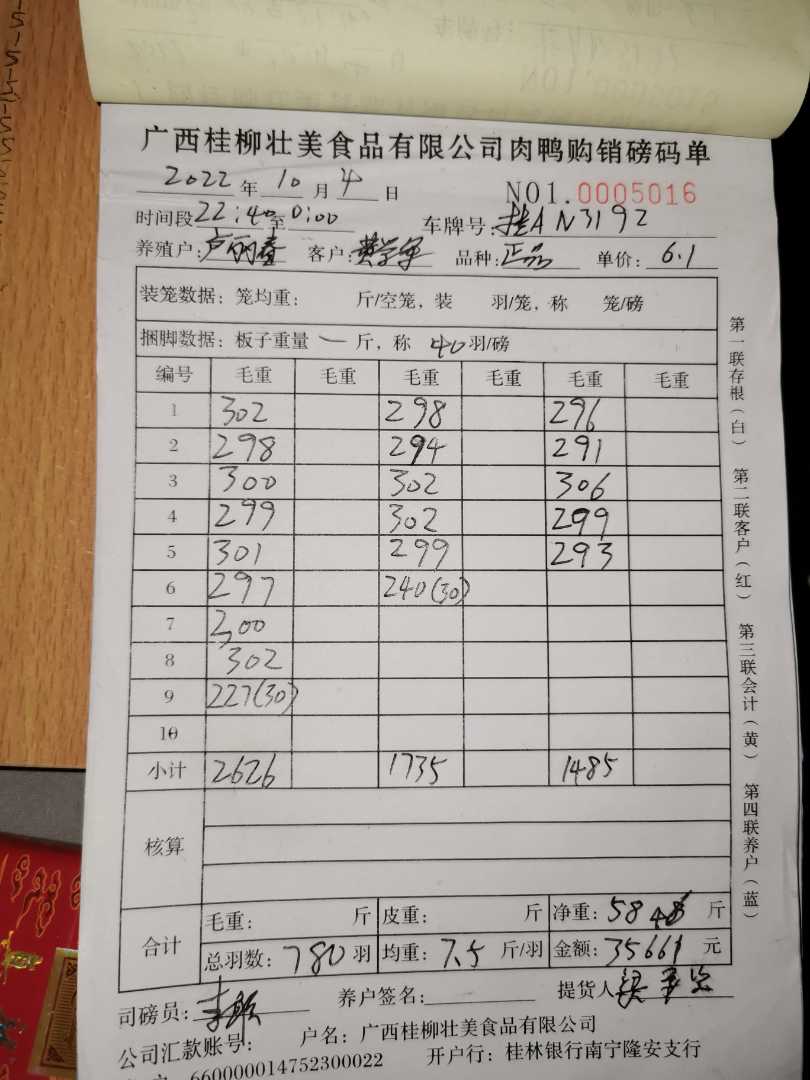 广西桂柳壮美食品有限公司肉鸭购销磅码单
2022年10月4日 NO1.0005016
时间段22:40至0:00 车牌号:桂AN3192
养殖户:卢丽春 客户:黄学军 品种:正品 单价:6.1
装笼数据:笼均重: 斤/空笼,装 羽/笼,称 笼/磅
捆脚数据:板子重量 一 斤,称 40羽/磅
编号 毛重 毛重 毛重 毛重 毛重 毛重
1 302 298 296
2 298 294 291
3 300 302 306
4 299 302 299
5 301 299 293
6 297 240(30)
7 300
8 302
9 227(30)
10
小计 2626 1735 1485
核算
合计 毛重: 斤 皮重: 斤 净重:5846斤
总羽数:780羽 均重:7.5斤/羽 金额:35661元
司磅员: 养户签名: 提货人
公司汇款账号: 户名:广西桂柳壮美食品有限公司
660000014752300022 开户行:桂林银行南宁隆安支行
第一联存根(白) 第二联客户(红) 第三联会计(黄) 第四联养户(蓝)